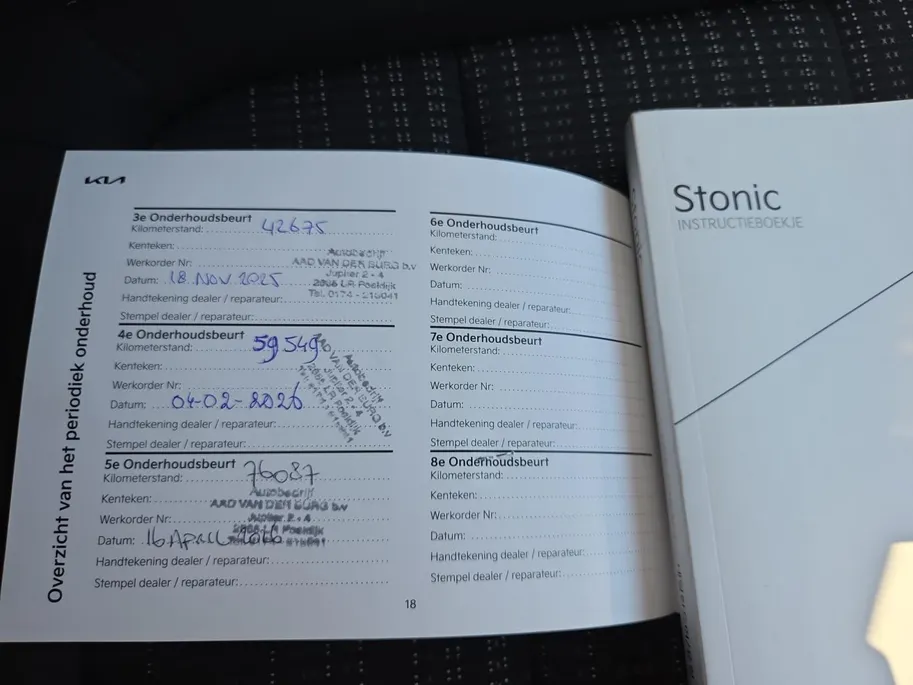 KIA
Overzicht van het periodiek onderhoud
3e Onderhoudsbeurt
Kilometerstand: 42675
Kenteken:
Werkorder Nr:
Datum: 18 NOV 2025
Handtekening dealer / reparateur:
Stempel dealer / reparateur:
Autobedrijf
AAD VAN DEN BURG b.v
Jupiter 2 - 4
2685 LR Poeldijk
Tel. 0174 -
4e Onderhoudsbeurt
Kilometerstand: 59549
Kenteken:
Werkorder Nr:
Datum: 04-02-2026
Handtekening dealer / reparateur:
Stempel dealer / reparateur:
Autobedrijf
AAD VAN DEN BURG b.v
Jupiter 2 - 4
Poeldijk
5e Onderhoudsbeurt
Kilometerstand: 76087
Kenteken:
Werkorder Nr:
Datum: 16 APRIL
Handtekening dealer / reparateur:
Stempel dealer / reparateur:
Autobedrijf
AAD VAN DEN BURG b.v
Jupiter 2 - 4
Poeldijk
6e Onderhoudsbeurt
Kilometerstand:
Kenteken:
Werkorder Nr:
Datum:
Handtekening dealer / reparateur:
Stempel dealer / reparateur:
7e Onderhoudsbeurt
Kilometerstand:
Kenteken:
Werkorder Nr:
Datum:
Handtekening dealer / reparateur:
Stempel dealer / reparateur:
8e Onderhoudsbeurt
Kilometerstand:
Kenteken:
Werkorder Nr:
Datum:
Handtekening dealer / reparateur:
Stempel dealer / reparateur:
18
Stonic
INSTRUCTIEBOEKJE